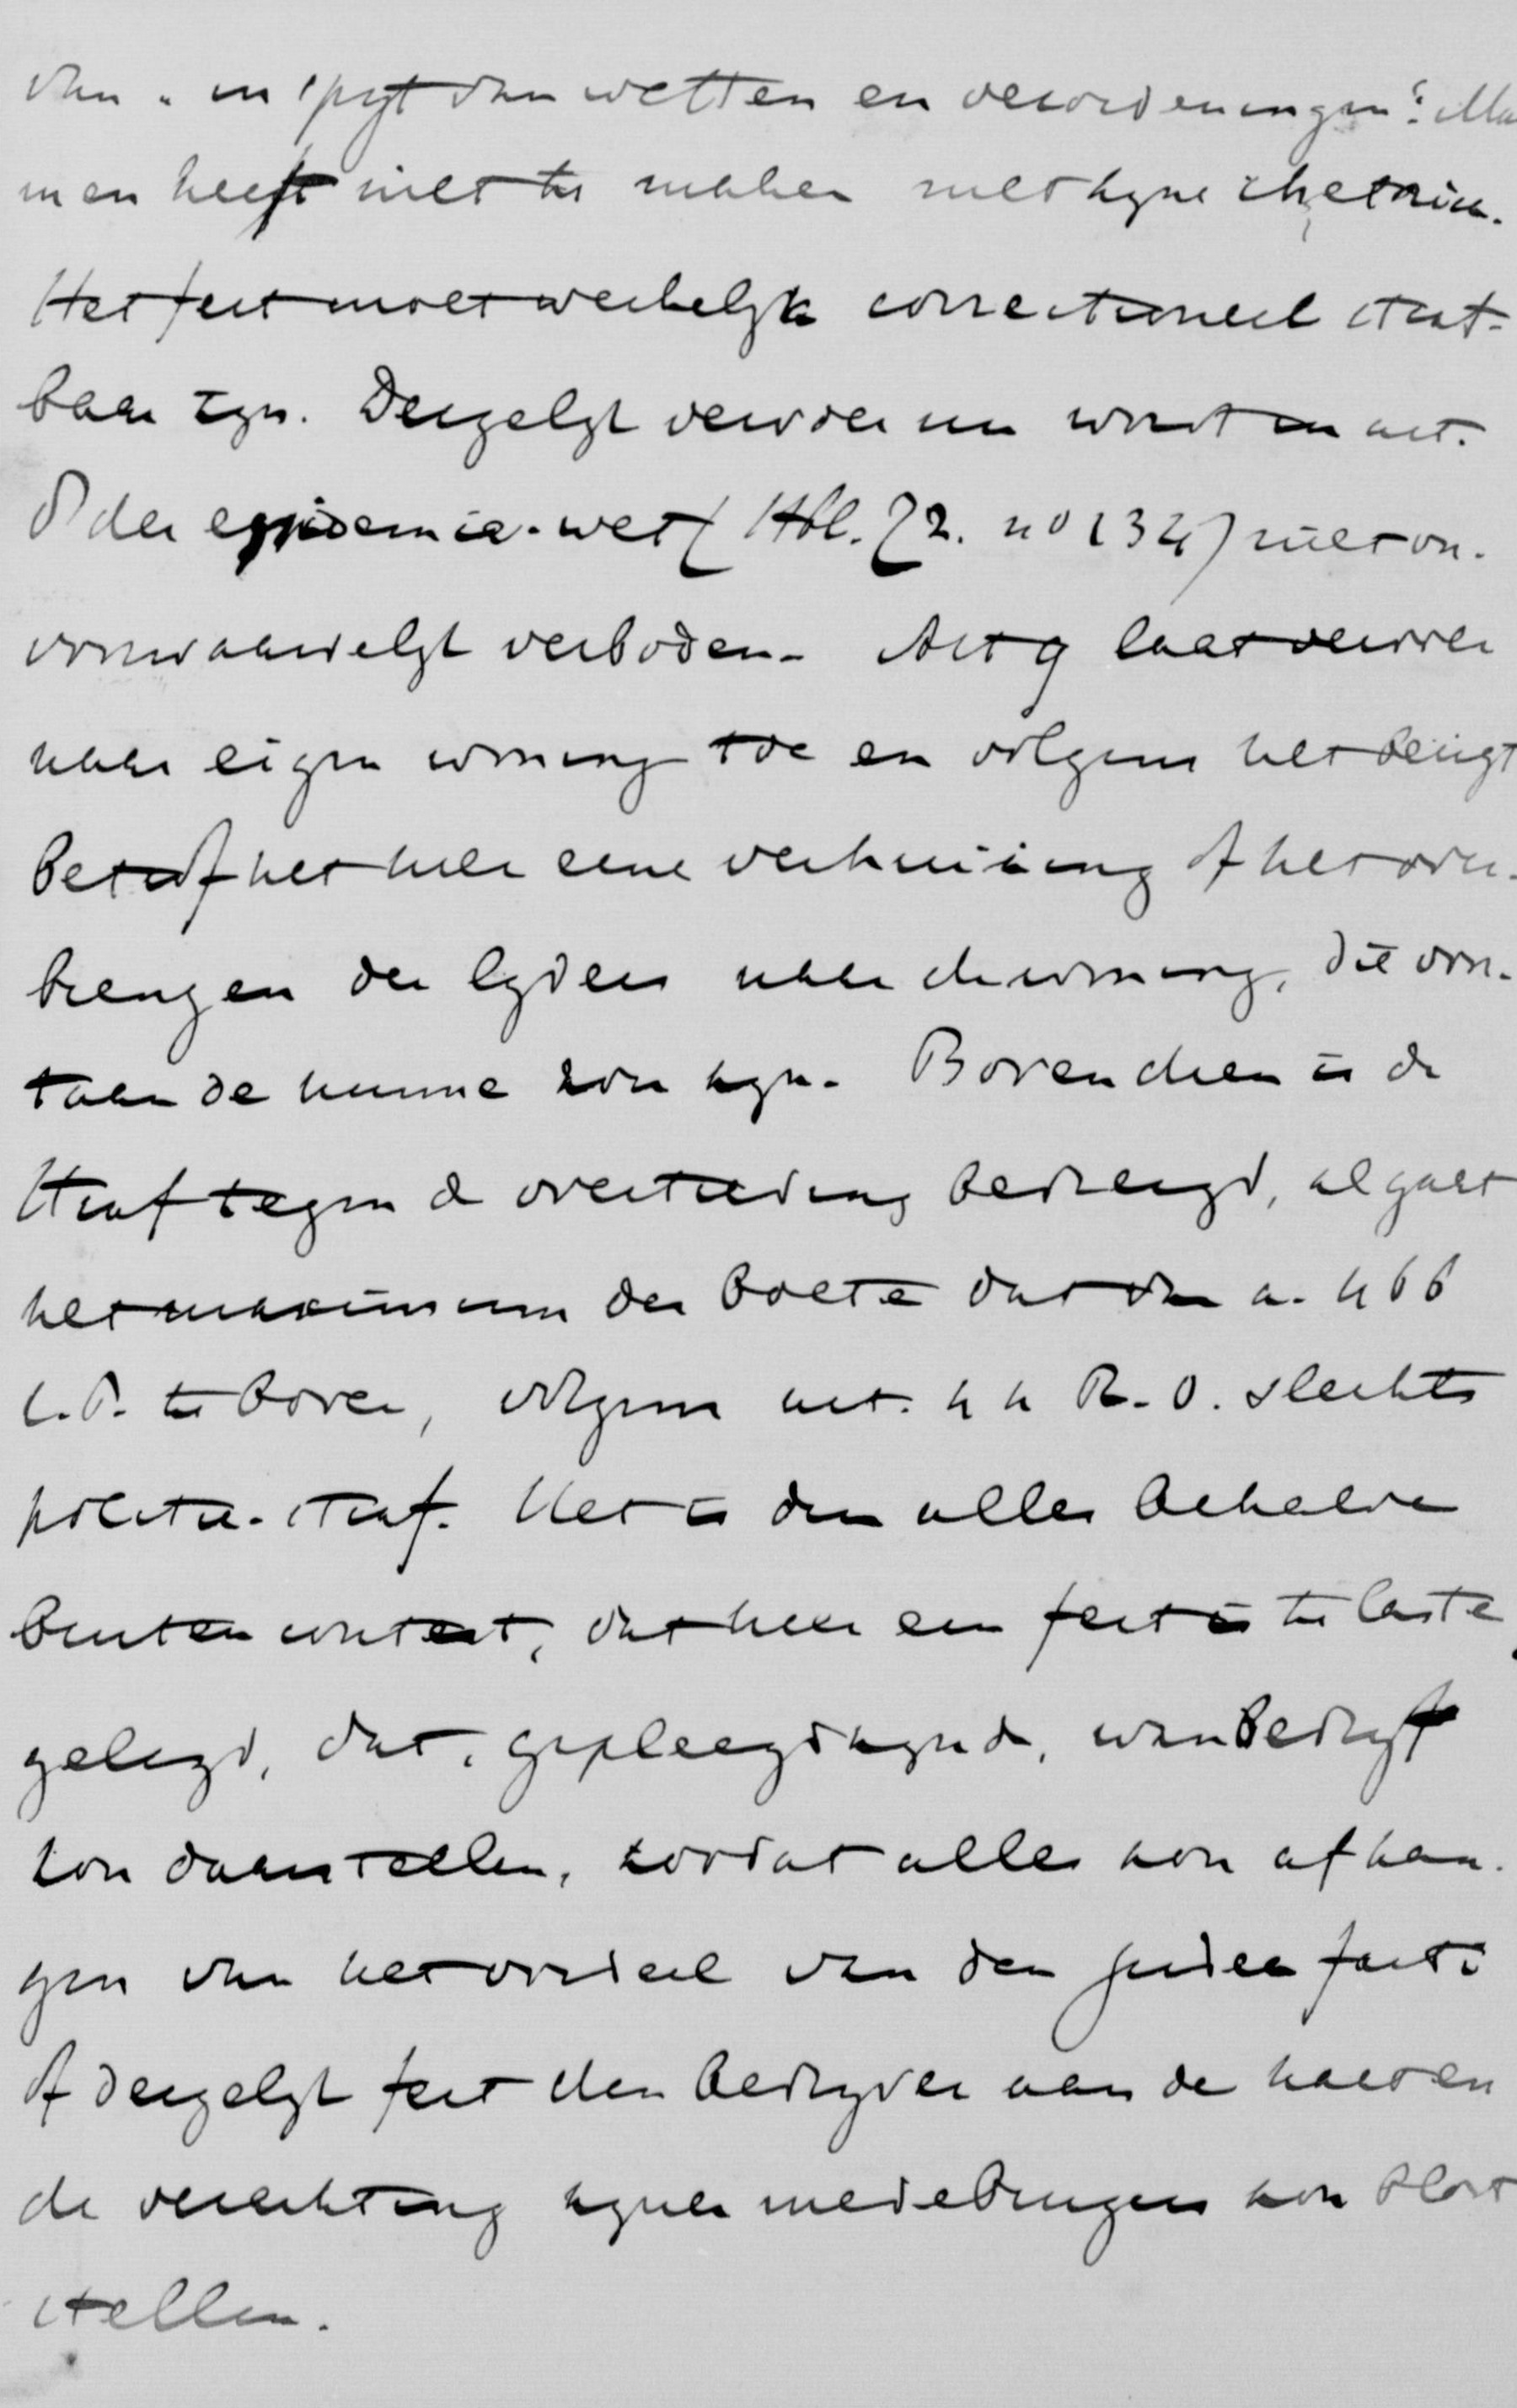 van "in spijt van wetten en verordeningen". Maa
men heeft niet te maken met zijne rhetorica.
Het feit moet werkelijk correctioneel straf-
baar zijn. Dergelijk vervoer nu wordt in art.
8 der epidemie-wet (Stbl. 72. no 134) niet on-
voorwaardelijk verboden. Art 9 laat vervoer
naar eigen woning toe en volgens het berigt
betrof het hier eene verhuizing of het over-
brengen der lijders naar de woning, die voor-
taan de hunne zou zijn. Bovendien is de
straf tegen de overtreding bedreigd, al gaat
het maximum der boete dat van a. 466
C.P. te boven, volgens art. 44 R.O. slechts
politie-straf. Het is dan alles behalve
buiten contest, dat hier een feit is te laste
gelegd, dat, gepleegd zijnde, wanbedrijf
zou daarstellen, zoodat alles zou afhan-
gen van het oordeel van den judex facti
of dergelijk feit den bedrijver aan de haat en
de verachting zijner medeburgers zou bloot
stellen.